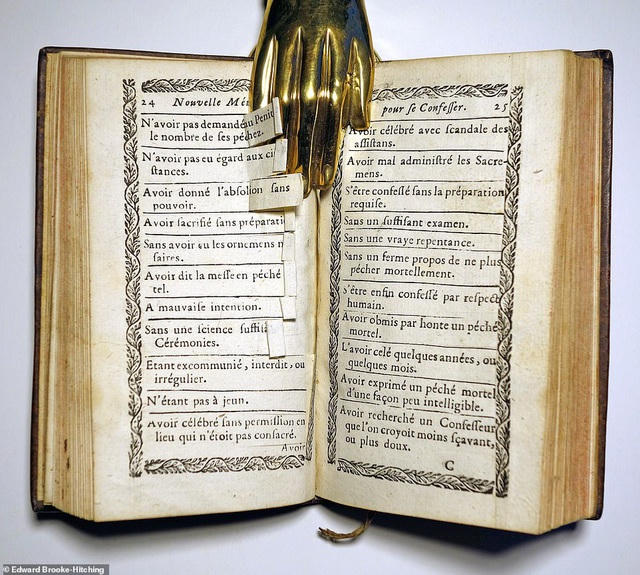 24 Nouvelle Mé
N'avoir pas demandé au Penit
le nombre de ses péchez.
N'avoir pas eu égard aux ci
stances.
Avoir donné l'absolion sans
pouvoir.
Avoir sacrifié sans préparati
Sans avoir eu les ornemens n
saires.
Avoir dit la messe en péché
tel.
A mauvaise intention.
Sans une science suffisa
Cérémonies.
Etant excommunié, interdit, ou
irrégulier.
N'étant pas à jeun.
Avoir célébré sans permission en
lieu qui n'étoit pas consacré.
Avoir
pour se Confesser. 25
Avoir célébré avec scandale des
assistans.
Avoir mal administré les Sacre-
mens.
S'être confessé sans la préparation
requise.
Sans un suffisant examen.
Sans une vraye repentance.
Sans un ferme propos de ne plus
pécher mortellement.
S'être enfin confessé par respect
humain.
Avoir obmis par honte un péché
mortel.
L'avoir celé quelques années, ou
quelques mois.
Avoir exprimé un péché mortel
d'une façon peu intelligible.
Avoir recherché un Confesseur
que l'on croyoit moins sçavant,
ou plus doux.
C
© Edward Brooke-Hitching